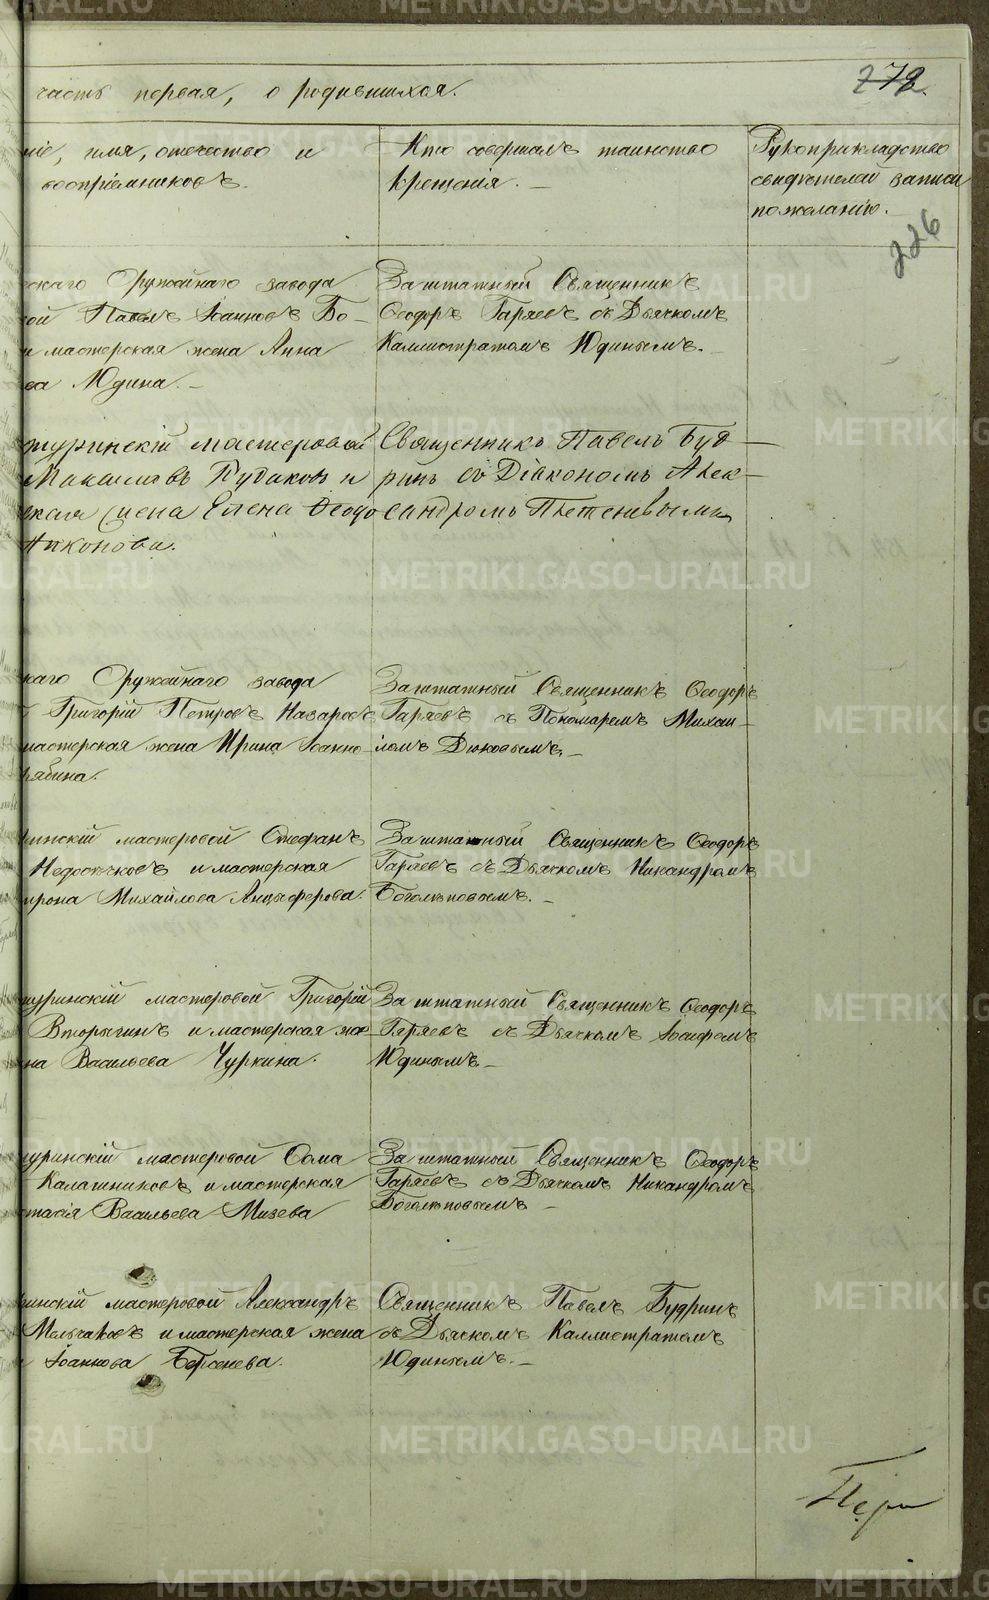 часть первая, о родившихся.
272.
226
ніе, имя, отечество и
воспріемниковъ.
Кто совершалъ таинство
крещенія. —
Рукоприкладство
свидѣтелей записи
по желанію.
скаго Оружейнаго завода
ой Павелъ Іоанновъ Бо-
и мастерская жена Анна
ва Юдина. —
Заштатный Священникъ
Ѳеодоръ Гаряевъ съ Дьячкомъ
Каллистратомъ Юдинымъ. —
туринскій мастеровой
Рудаковъ и
ская жена Елена Ѳеодо
Никонова.
Священникъ Павелъ Буд-
ринъ съ Діакономъ Алек-
сандромъ Плетеневымъ
каго Оружейнаго завода
Григорій Петровъ Назаровъ
мастерская жена Ирина Іоанно-
рябина.
Заштатный Священникъ Ѳеодоръ
Гаряевъ съ Пономаремъ Михаи-
ломъ Дюковымъ. —
инскій мастеровой Стефанъ
и мастерская
Михайлова Анцыферова.
Заштатный Священникъ Ѳеодоръ
Гаряевъ съ Дьячкомъ Никандромъ
Боголѣповымъ. —
туринскій мастеровой Григорій
Вторыгинъ и мастерская же-
на Васильева Чуркина.
Заштатный Священникъ Ѳеодоръ
Гаряевъ съ Дьячкомъ Іосифомъ
Юдинымъ. —
туринскій мастеровой Ѳома
Калашниковъ и мастерская
стасія Васильева Мизева
Заштатный Священникъ Ѳеодоръ
Гаряевъ съ Дьячкомъ Никандромъ
Боголѣповымъ —
инскій мастеровой Александръ
Мельчаковъ и мастерская жена
Іоаннова Берсенева.
Священникъ Павелъ Будринъ
съ Дьячкомъ Каллистратомъ
Юдинымъ. —
METRIKI.GASO-URAL.RU